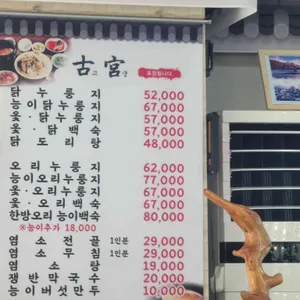 古고宮궁 포장됩니다
닭누룽지 52,000
능이닭누룽지 67,000
옻·닭누룽지 57,000
옻·닭백숙 57,000
닭도리탕 48,000
오리누룽지 62,000
능이오리누룽지 77,000
옻·오리누룽지 67,000
옻·오리백숙 67,000
한방오리능이백숙 80,000
※능이추가 18,000
염소전골 1인분 29,000
염소무침 1인분 29,000
염소탕 19,000
쟁반막국수 20,000
능이버섯만두 10,000